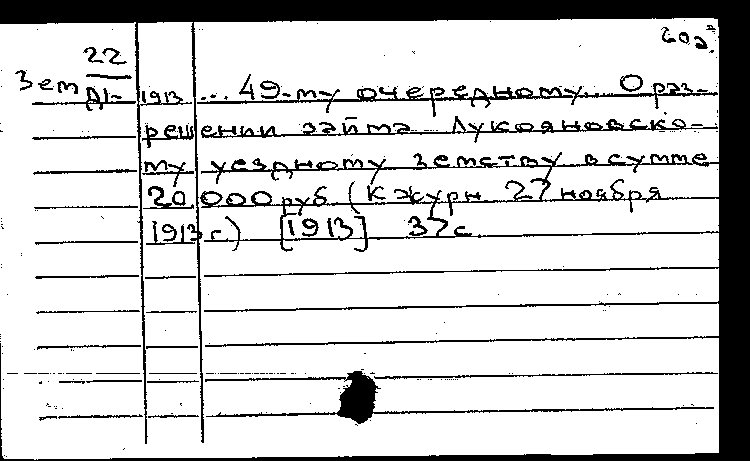 602
22
Зем
Д1- 1913 ... 49-му очередному. О раз-
решении займа Лукояновско-
му уездному земству в сумме
20,000 руб (К журн. 27 ноября
1913 г.) [1913] 37 с.